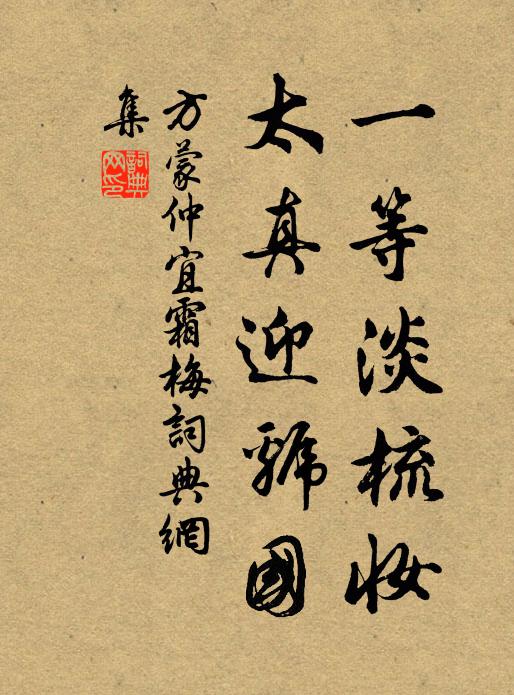 一等淡梳妆
太真迎虢國
方蒙仲宜霜梅詞典網
集
詞典
网印